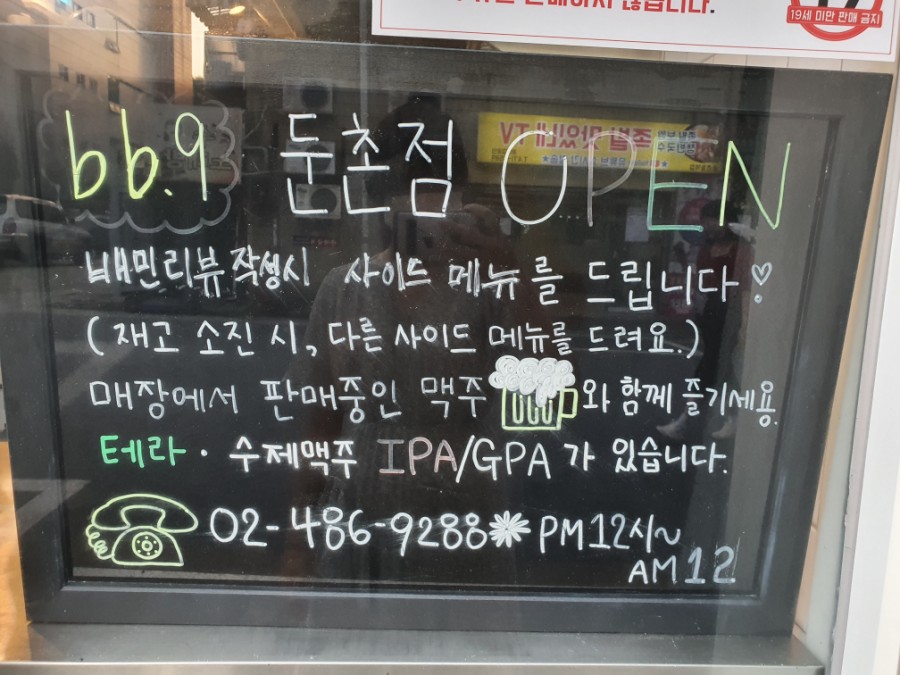 19세 미만 판매 금지
bb.9 둔촌점 OPEN
배민리뷰 작성시 사이드 메뉴를 드립니다♡
(재고 소진 시, 다른 사이드 메뉴를 드려요.)
매장에서 판매중인 맥주 와 함께 즐기세용.
테라 · 수제맥주 IPA/GPA 가 있습니다.
02-486-9288 PM 12시~
AM 12
족발 맛있네 TV